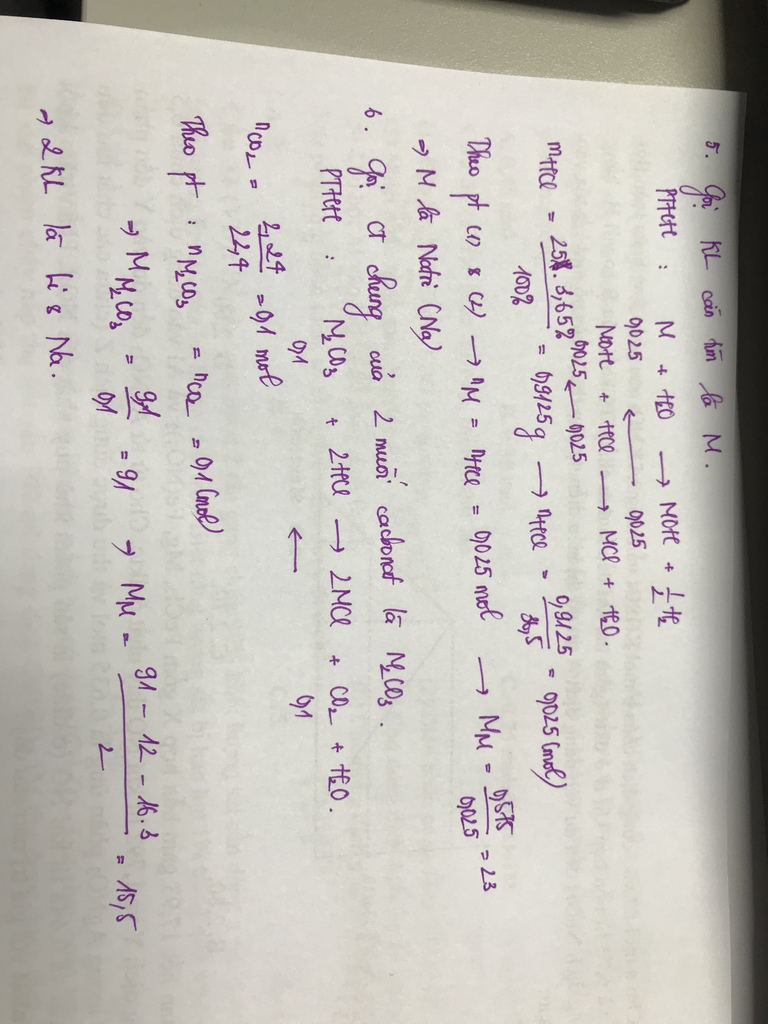 5. Gọi KL cần tìm là M.
PTHH : M + H2O → MOH + 1/2 H2
0,025 ← 0,025
MOH + HCl → MCl + H2O.
0,025 ← 0,025
mHCl = 25.3,65% / 100% = 0,9125g → nHCl = 0,9125 / 36,5 = 0,025(mol)
Theo pt (1) & (2) → nM = nHCl = 0,025 mol → MM = 0,575 / 0,025 = 23
⇒ M là Natri (Na)
6. Gọi CT chung của 2 muối cacbonat là M2CO3.
PTHH : M2CO3 + 2HCl → 2MCl + CO2 + H2O.
0,1 ← 0,1
nCO2 = 2,24 / 22,4 = 0,1 mol
Theo pt : nM2CO3 = nCO2 = 0,1(mol)
⇒ MM2CO3 = 9,1 / 0,1 = 91 → MM = 91 - 12 - 16.3 / 2 = 15,5
⇒ 2 KL là Li & Na.